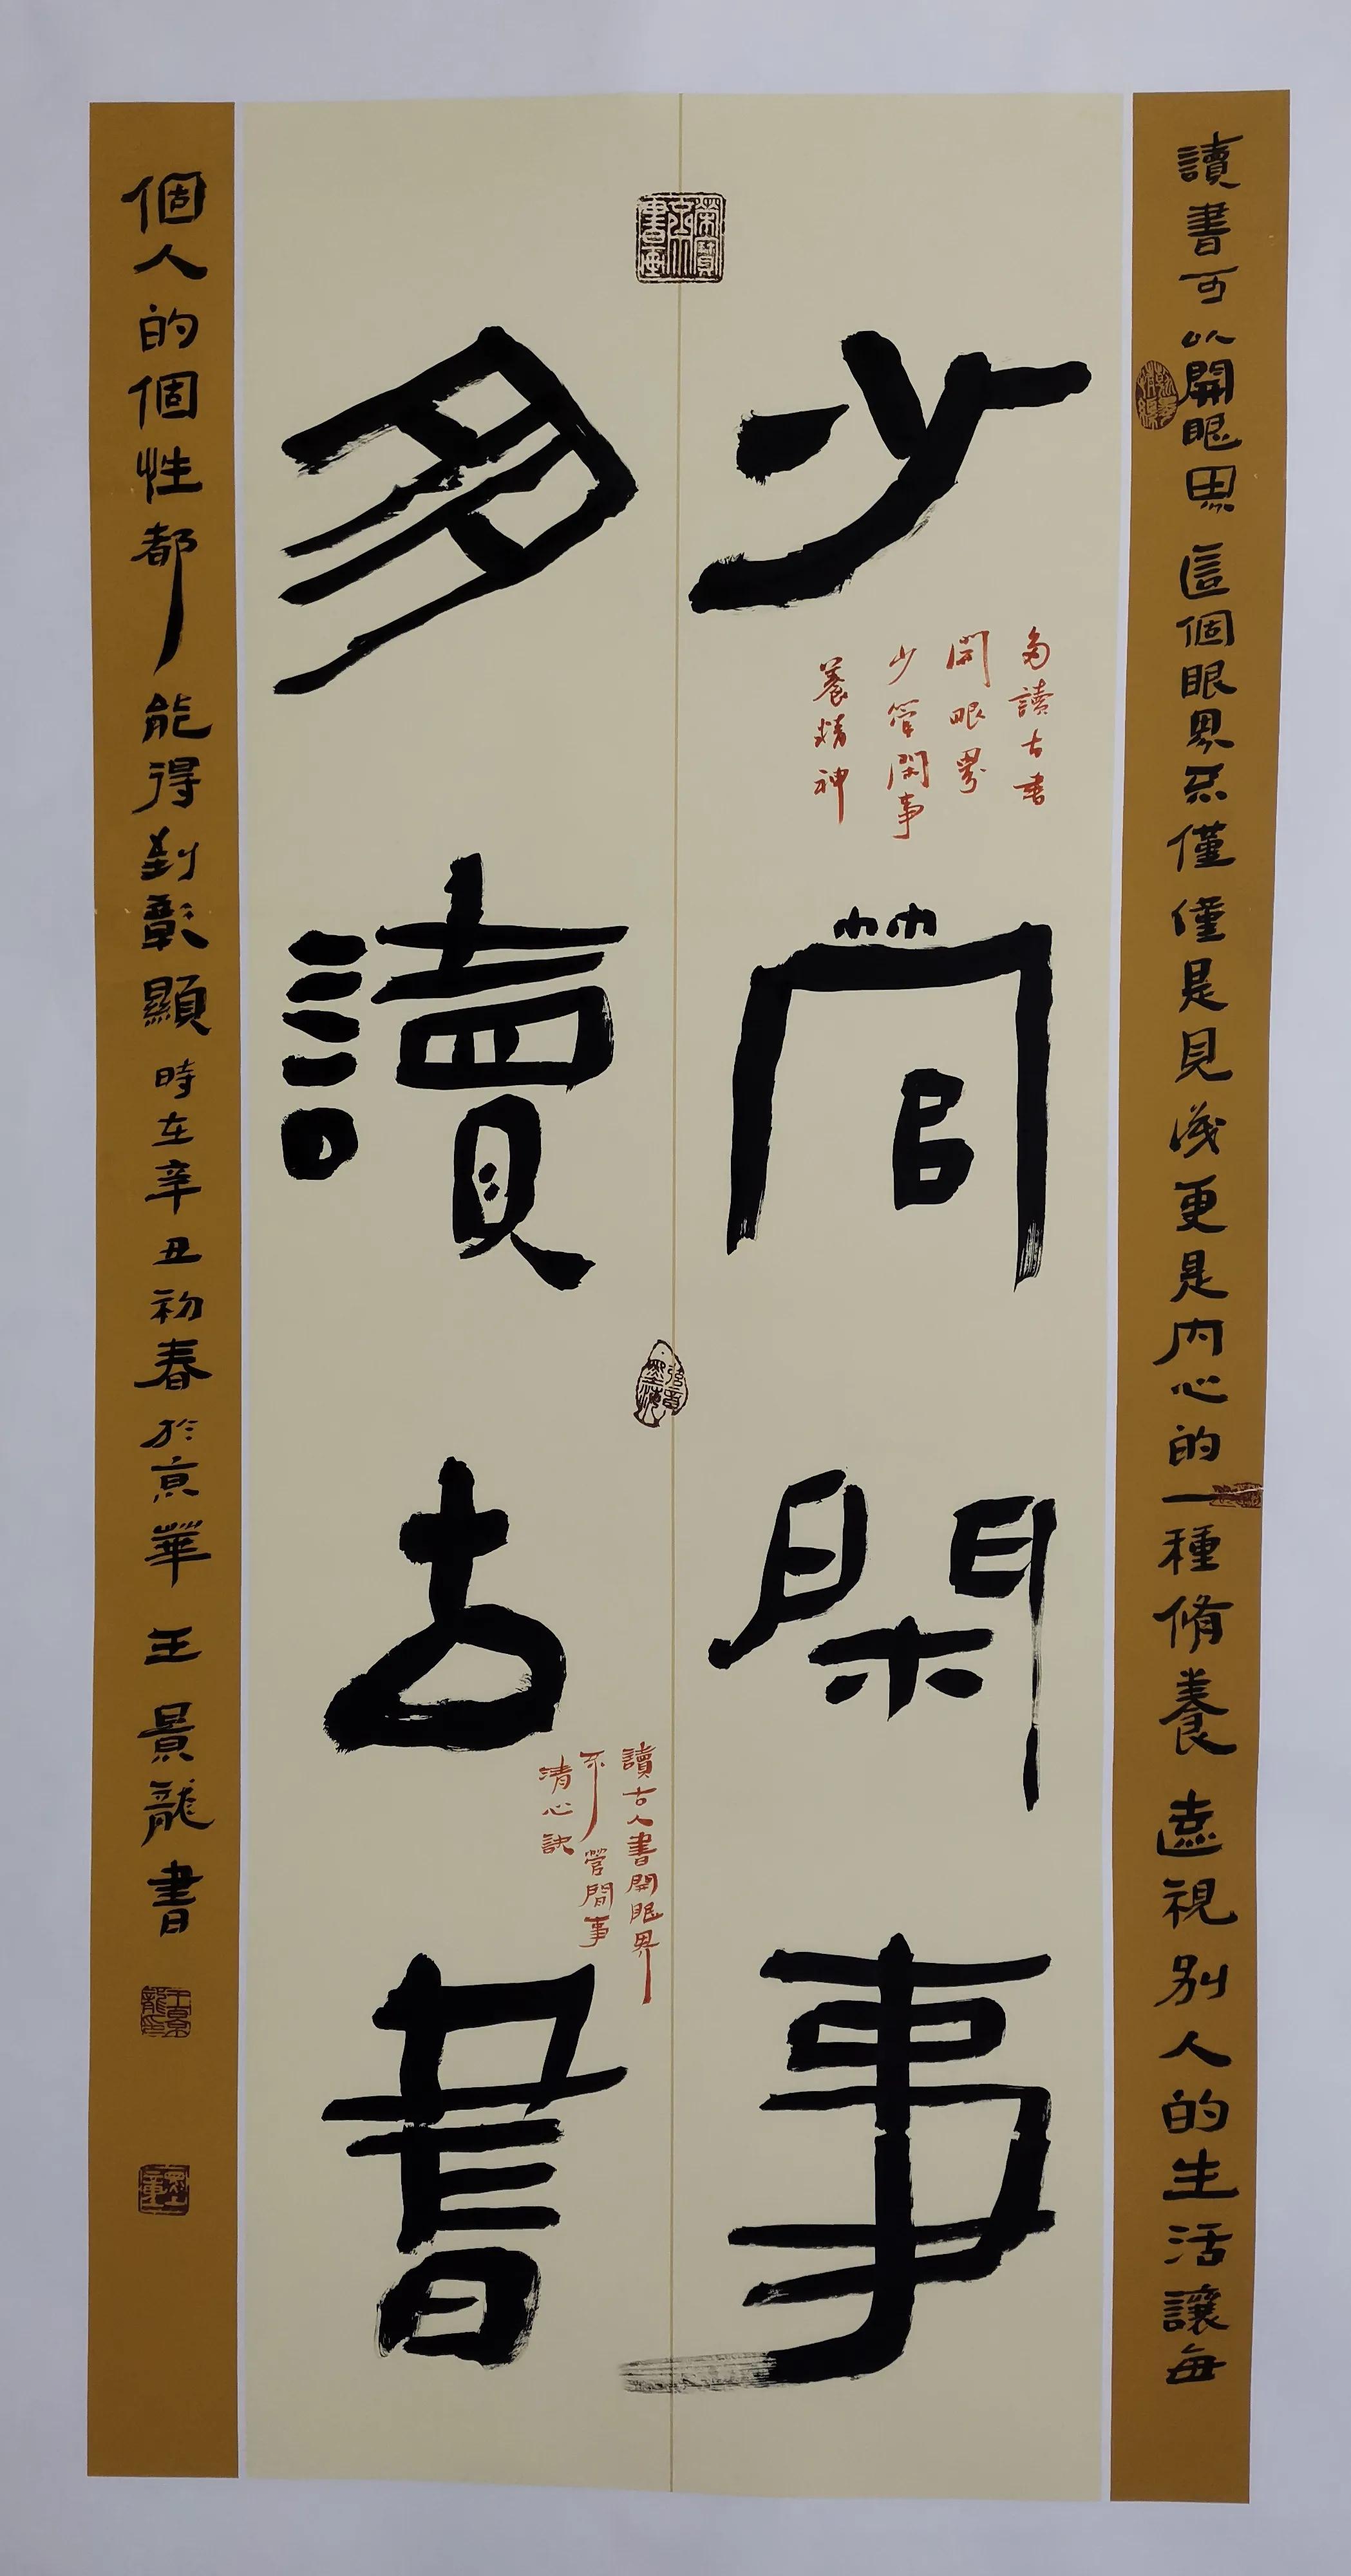 讀書可以開眼界這個眼界不僅僅是見識更是內心的一種脩養蔗視別人的生活讓每
少管閑事
多讀古書
多讀古書
開眼界
少管閑事
養精神
讀古人書開眼界
不管閒事
清心訣
個人的個性都能得到彰顯時在辛丑初春於京華王景龍書
王景龍印